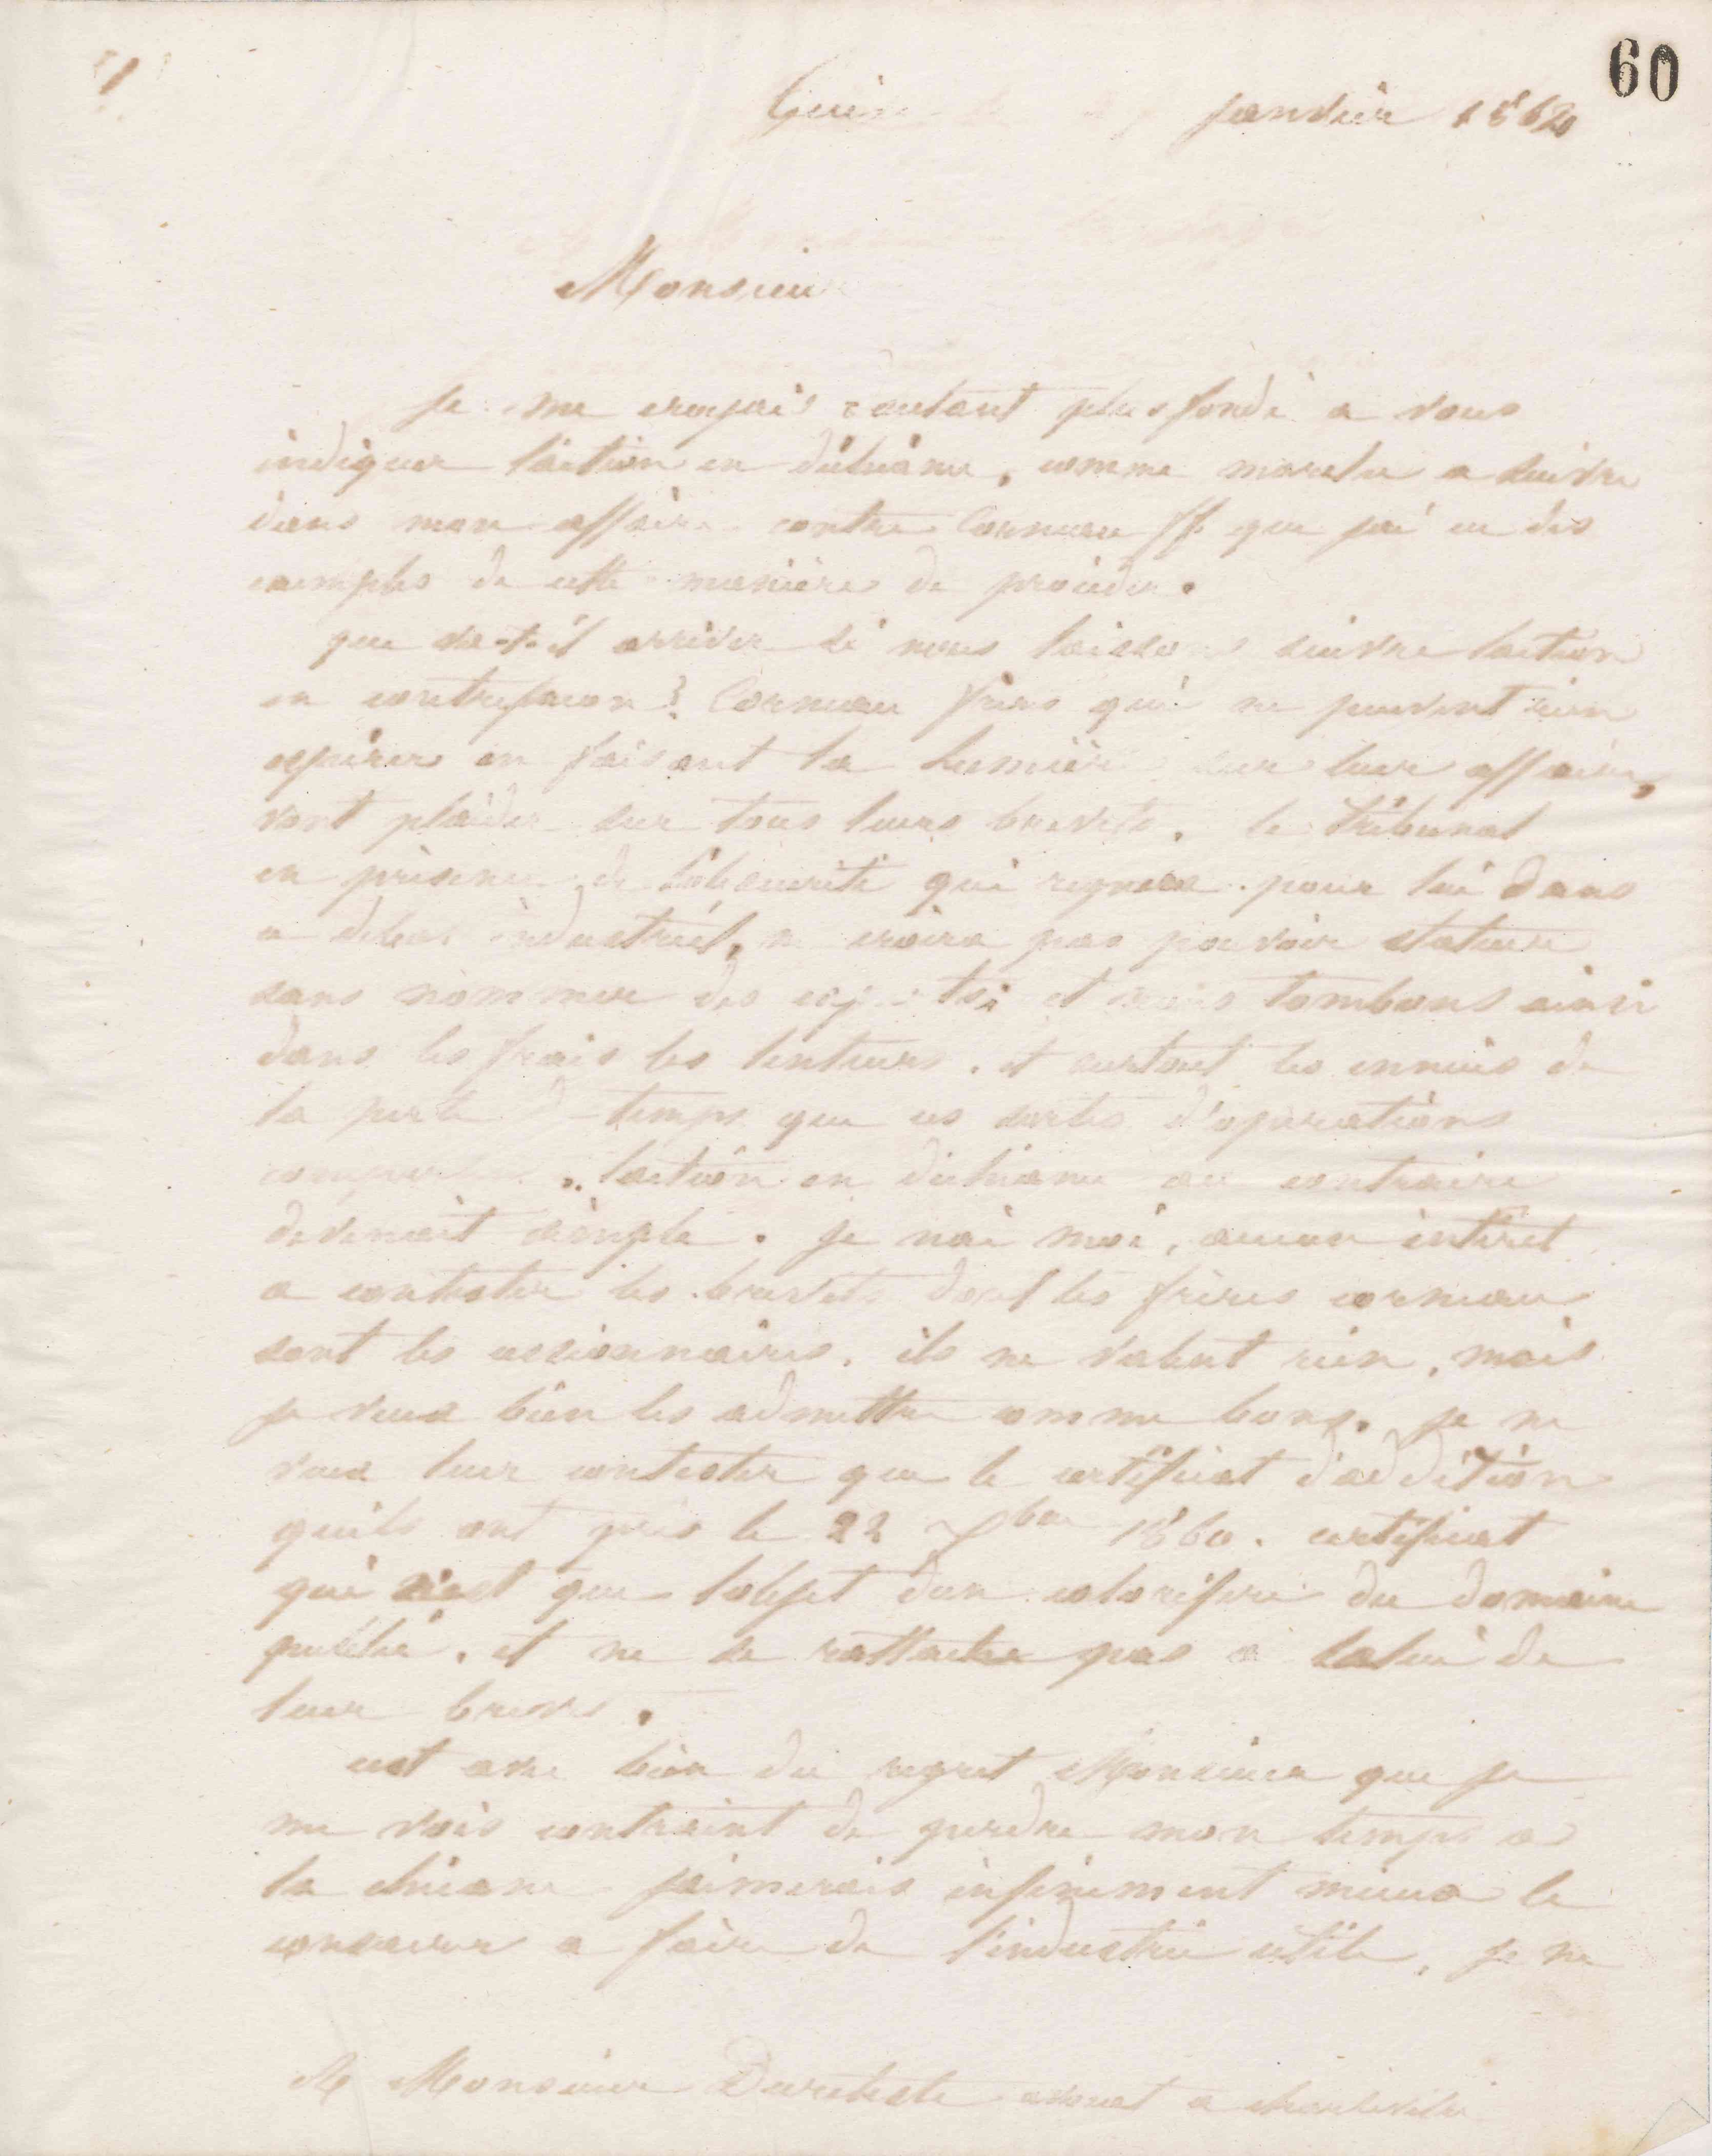 60
Guise janvier 1862
Monsieur
Je me croyais d'autant plus fondé a vous
indiquer l'action en déchéance, comme marche a suivre
dans mon affaire contre Corneau ff que j'ai eu des
exemples de cette manière de proceder.
que va-t-il arriver si nous laissons suivre l'action
en contrefacon? Corneau frères qui ne peuvent rien
espérer en faisant la lumière sur leur affaire,
vont plaider sur tous leurs brevets. le tribunal
en présence de l'obscurité qui regnera pour lui dans
ce debat industriel, ne croira pas pouvoir statuer
sans nommer des experts et nous tombons ainsi
dans les frais les lenteurs. et surtout les ennuis de
la perte de temps que ces sortes d'opérations
l'action en déchéance au contraire
devenait simple. Je n'ai moi, aucun intéret
a contester les brevets dont les frères corneau
sont les cessionnaires. ils ne valent rien, mais
je veux bien les admettre comme bons. Je ne
veux leur contester que le certificat d'addition
quils ont pris le 22 7bre 1860. certificat
qui n'est que l'objet d'un calorifere du domaine
public. et ne se rattache pas a celui de
leur brevet.
cest avec bien du regret Monsieur que je
me vois contraint de perdre mon temps a
la chicane jaimerais infiniment mieux le
conserver a faire de l'industrie utile, je ne
A Monsieur avouet a charleville